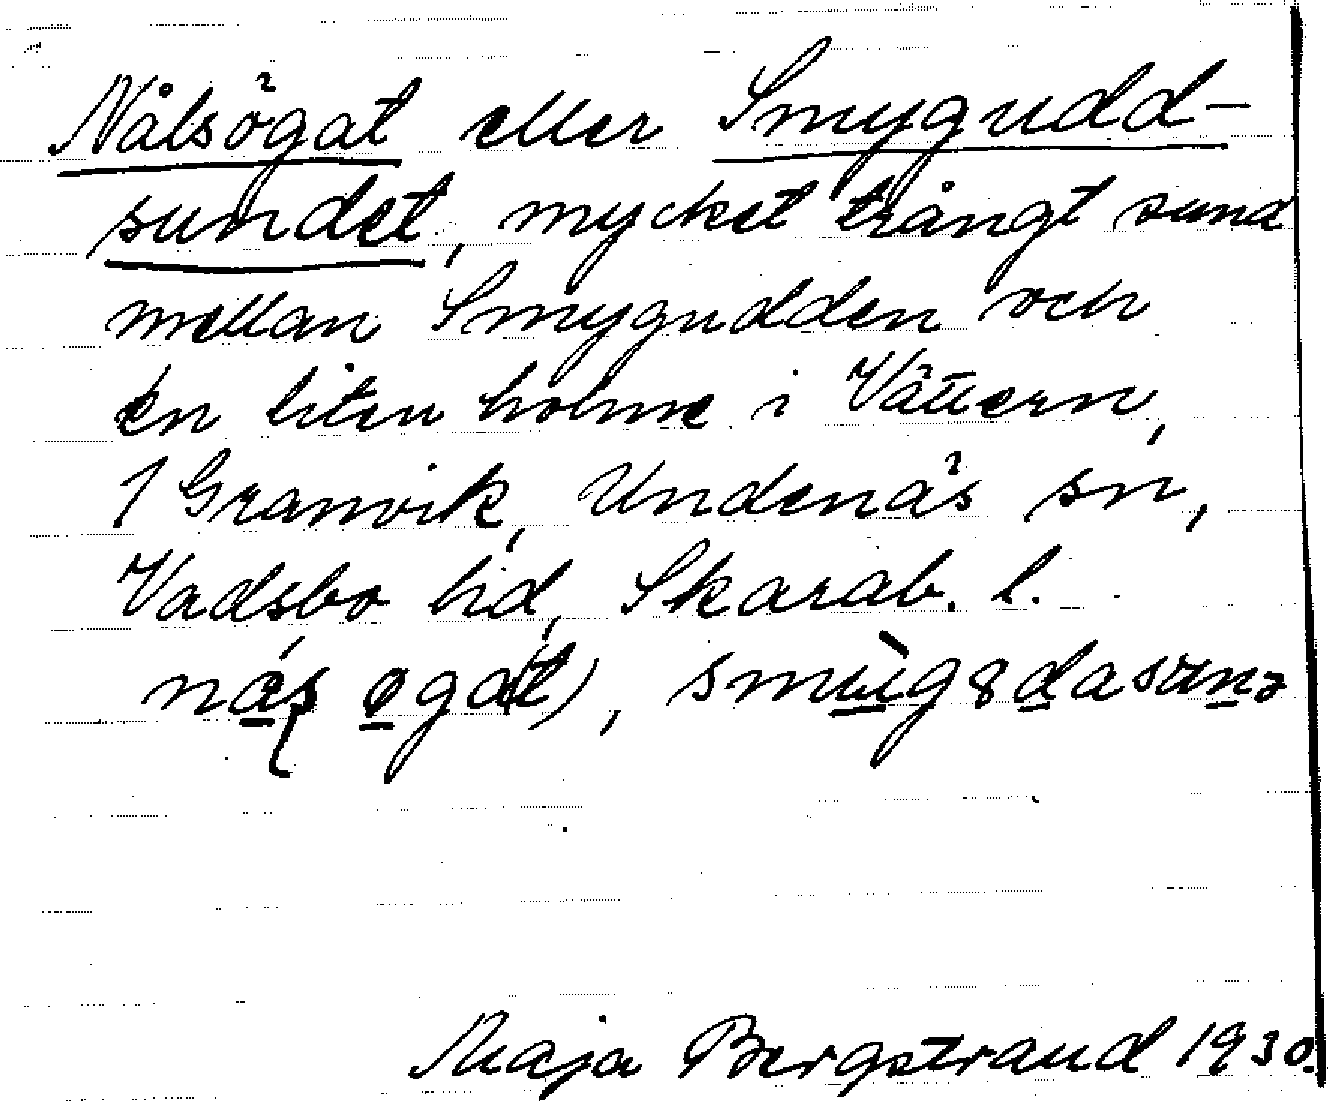 Nålsögat eller Smygudd-
sundet, mycket trångt sund
mellan Smygudden och
en liten holme i Vättern,
1 Granvik, Undenäs sn,
Vadsbo hd, Skarab. l.
Maja Bergstrand 1930.